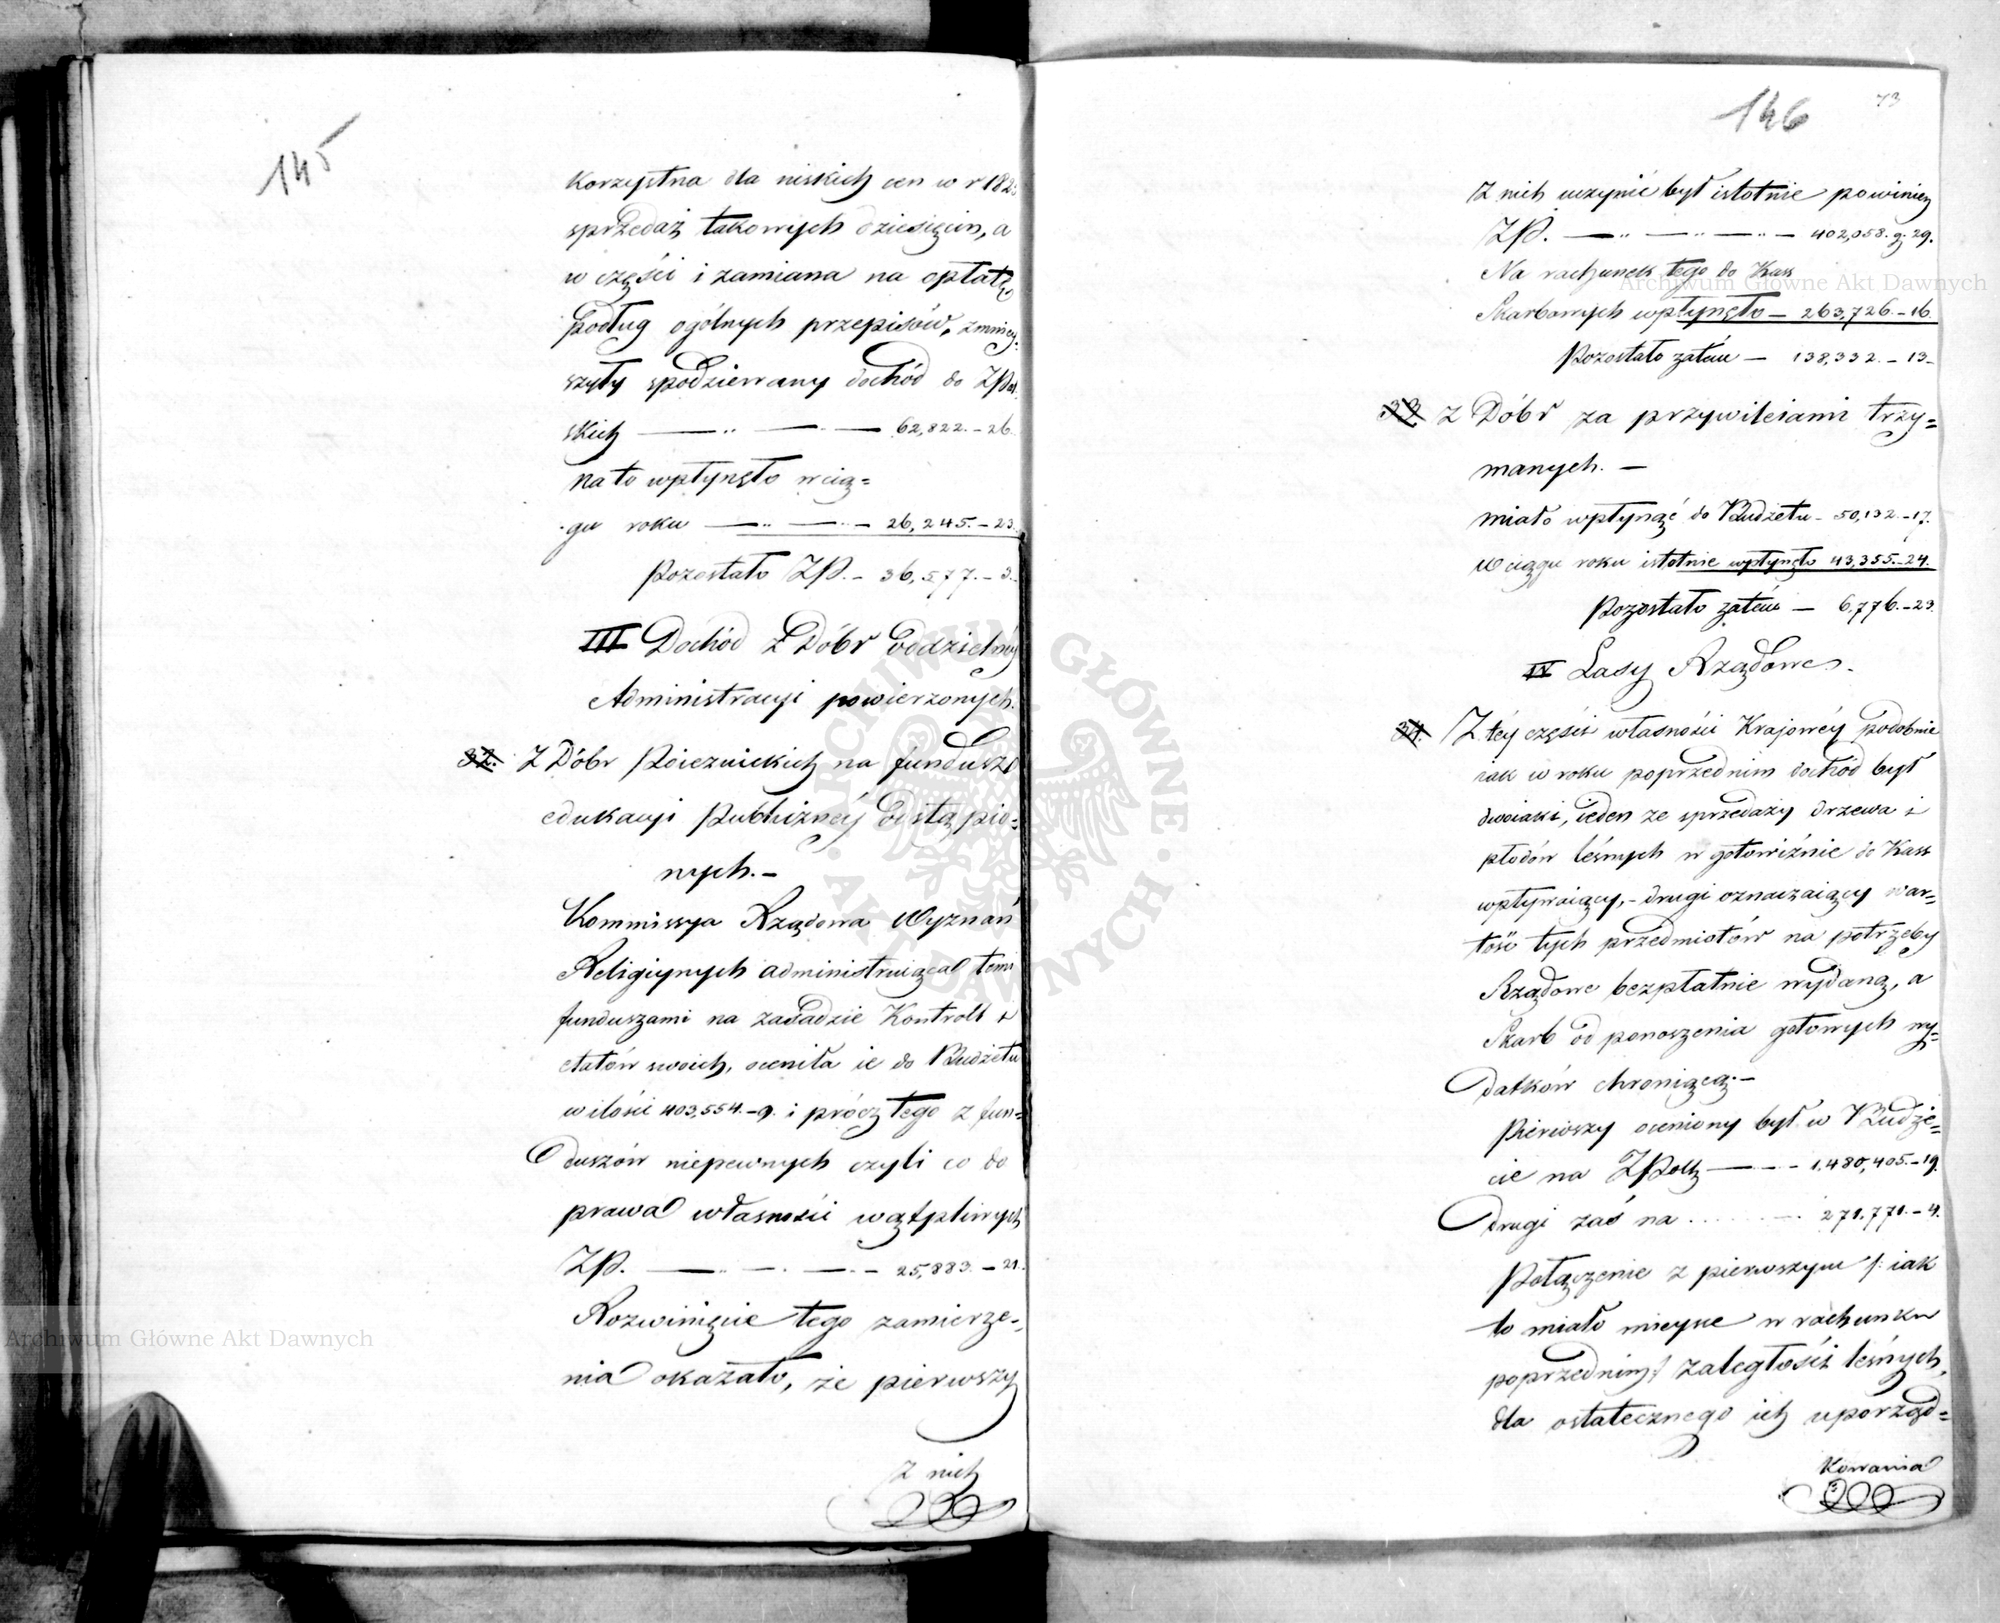 145
korzystna dla niskich cen w r 182
sprzedaż takowych dziesięcin, a
w części i zamiana na opłatę
podług ogólnych przepisów, zmniey-
szyły spodziewany dochód do ZPol
skich — 62,822. - 26.
na to wpłynęło w cią=
gu roku — 26,245. - 23.
Pozostało ZP. - 36,577. - 3.
III Dochód z Dóbr Oddzielnéy
Administracyi powierzonych.
32. Z Dóbr Poiezuickich na fundusz
edukacyi Publicznéy Odstąpio=
nych. -
Kommissya Rządowa Wyznań
Religiynych administruiąca temi
funduszami na zasadzie Kontroll i
etatów swoich, oceniła ie do Budżetu
w ilości 403,554. - 9. i prócz tego z fun=
duszów niepewnych czyli co do
prawa własności wątpliwych
ZP. — 25,883. - 21.
Rozwinięcie tego zamierze-
nia okazało, że pierwszy
z nich
146
73
z nich uczynić był istotnie powinien
ZP. — 402,058. g. 29.
Na rachunek tego do Kass
Skarbowych wpłynęło — 263,726. - 16.
Pozostało zatém — 138,332. - 13 -
33. z Dóbr za przywileiami trzy=
manych. —
miało wpłynąć do Budżetu - 50,132. - 17.
w ciągu roku istotnie wpłynęło 43,355. - 24.
Pozostało zatém — 6,776. - 23.
IV Lasy Rządowe.
34. Z téy części własności Krajowéy podobnie
iak w roku poprzednim dochód był
dwoiaki, ieden ze sprzedaży drzewa i
płodów leśnych w gotowiźnie do Kass
wpływaiący, - drugi oznaczaiący war=
tość tych przedmiotów na potrzeby
Rządowe bezpłatnie wydaną, a
Skarb od ponoszenia gotowych wy=
datków chroniącą. -
Pierwszy oceniony był w Budże=
cie na ZPolk — 1,480,405. - 19.
drugi zaś na . . . . . — 271,771. - 4.
Połączenie z pierwszym /: iak
to miało mieysce w rachunku
poprzednim :/ zaległości leśnych,
dla ostatecznego ich uporząd=
kowania
Archiwum Główne Akt Dawnych
Archiwum Główne Akt Dawnych
ARCHIWUM GŁÓWNE · AKT DAWNYCH ·